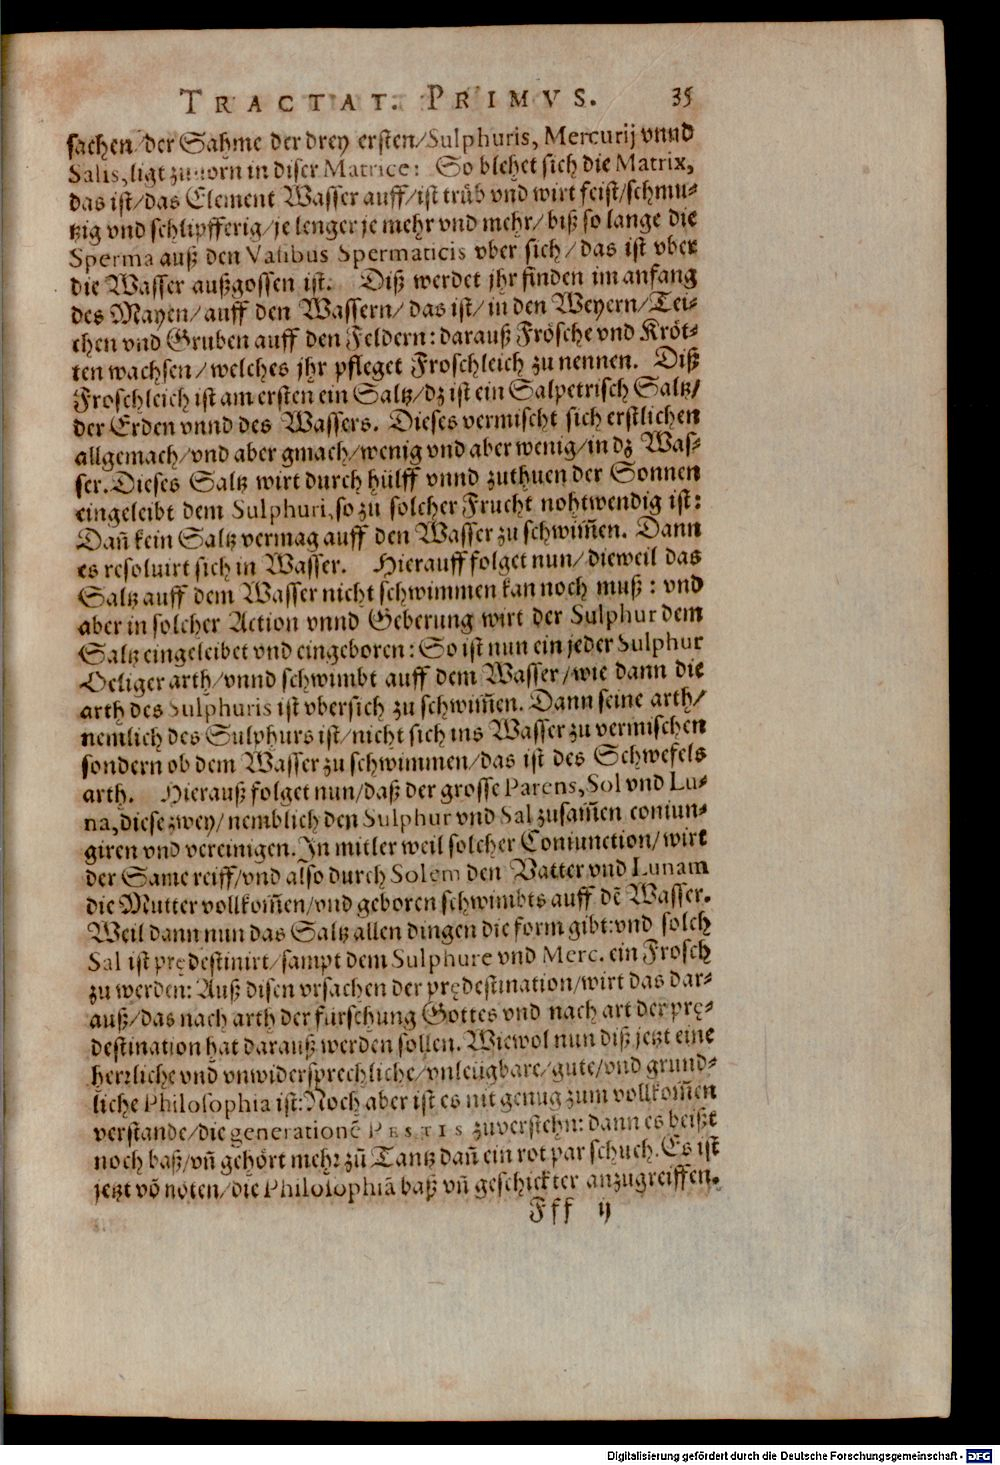 TRACTAT. PRIMVS. 35
sachen/der Sahme der drey ersten/Sulphuris, Mercurij vnnd
Salis, ligt zuuorn in diser Matrice: So blehet sich die Matrix,
das ist/das Element Wasser auff/ist trüb vnd wirt feist/schmu-
tzig vnd schlipfferig/je lenger je mehr vnd mehr/biß so lange die
Sperma auß den Vasibus Spermaticis vber sich/das ist vber
die Wasser außgossen ist. Diß werdet jhr finden im anfang
des Mayen/auff den Wassern/das ist/in den Weyern/Tei-
chen vnd Gruben auff den Feldern: darauß Frösche vnd Kröt-
ten wachsen/welches jhr pfleget Froschleich zu nennen. Diß
Froschleich ist am ersten ein Saltz/dz ist ein Salpetrisch Saltz/
der Erden vnnd des Wassers. Dieses vermischt sich erstlichen
allgemach/vnd aber gmach/wenig vnd aber wenig/in dz Was-
ser. Dieses Saltz wirt durch hülff vnnd zuthuen der Sonnen
eingeleibt dem Sulphuri, so zu solcher Frucht nohtwendig ist:
Dañ kein Saltz vermag auff den Wasser zu schwim̃en. Dann
es resoluirt sich in Wasser. Hierauff folget nun/dieweil das
Saltz auff dem Wasser nicht schwimmen kan noch muß: vnd
aber in solcher Action vnnd Geberung wirt der Sulphur dem
Saltz eingeleibet vnd eingeboren: So ist nun ein jeder Sulphur
Oeliger arth/vnnd schwimbt auff dem Wasser/wie dann die
arth des Sulphuris ist vbersich zu schwim̃en. Dann seine arth/
nemlich des Sulphurs ist/nicht sich ins Wasser zu vermischen
sondern ob dem Wasser zu schwimmen/das ist des Schwefels
arth. Hierauß folget nun/daß der grosse Parens, Sol vnd Lu-
na, diese zwey/nemblich den Sulphur vnd Sal zusam̃en coniun-
giren vnd vereinigen. In mitler weil solcher Coniunction/wirt
der Same reiff/vnd also durch Solem den Vatter vnd Lunam
die Mutter vollkom̃en/vnd geboren schwimbts auff dẽ Wasser.
Weil dann nun das Saltz allen dingen die form gibt: vnd solch
Sal ist prędestinirt/sampt dem Sulphure vnd Merc. ein Frosch
zu werden: Auß disen vrsachen der prędestination/wirt das dar-
auß/das nach arth der fürsehung Gottes vnd nach art der prę-
destination hat darauß werden sollen. Wiewol nun diß jetzt eine
herrliche vnd vnwidersprechliche/vnleugbare/gute/vnd grund-
liche Philosophia ist: Noch aber ist es nit genug zum vollkom̃en
verstande/die generationẽ PESTIS zuverstehn: dann es heißt
noch baß/vñ gehört mehr zũ Tantz dañ ein rot par schuch. Es ist
jetzt võ nöten/die Philosophiã baß vñ geschickter anzugreiffen.
Fff ij
Digitalisierung gefördert durch die Deutsche Forschungsgemeinschaft - DFG